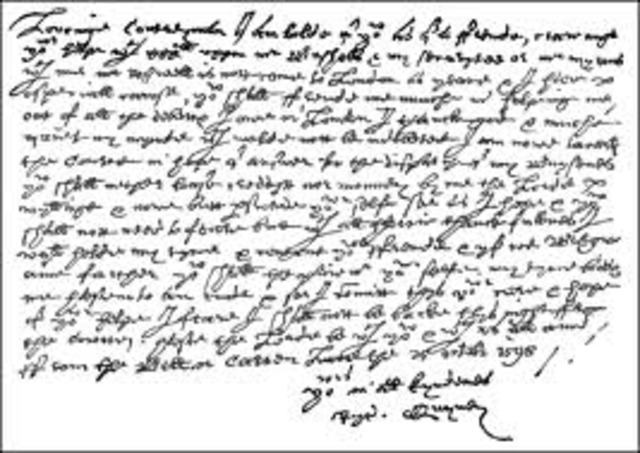 Loveinge Contreyman, I am bolde of yow as of a ffrende, craveinge
yowr helpe with xxxll vppon mr Bushells & my securytee or mr myttons
with me mr Rosswell is nott come to London as yeate & I have
especiall cawse, yow shall ffrende me muche in helpeinge me
out of all the debettes I owe in London I thancke god & muche
quiet my mynde which wolde nott be indebeted I am nowe towardes
the Cowrte in hope of answer for the dispatche of my Buysenes
yow shall nether loase creddytt nor monney by me the Lorde
wyllinge & nowe butt perswade yowr selfe soe as I hope & yow
shall nott need to feare butt with all hartie thanckefullnes I
wyll holde my tyme & content yowr ffrende & yf we Bargaine
farther yow shall be the paiemaster yowr selfe my tyme biddes
me hasten to an ende & soe I committ thys yowr care & hope
of yowr helpe I feare I shall nott be backe thys night ffrom
the Cowrte haste the Lorde be with yow & with us all amen
ffrom the Bell in Carter Lane the 25 october 1598
yowrs in all kyndenes
Ryc. Quyney